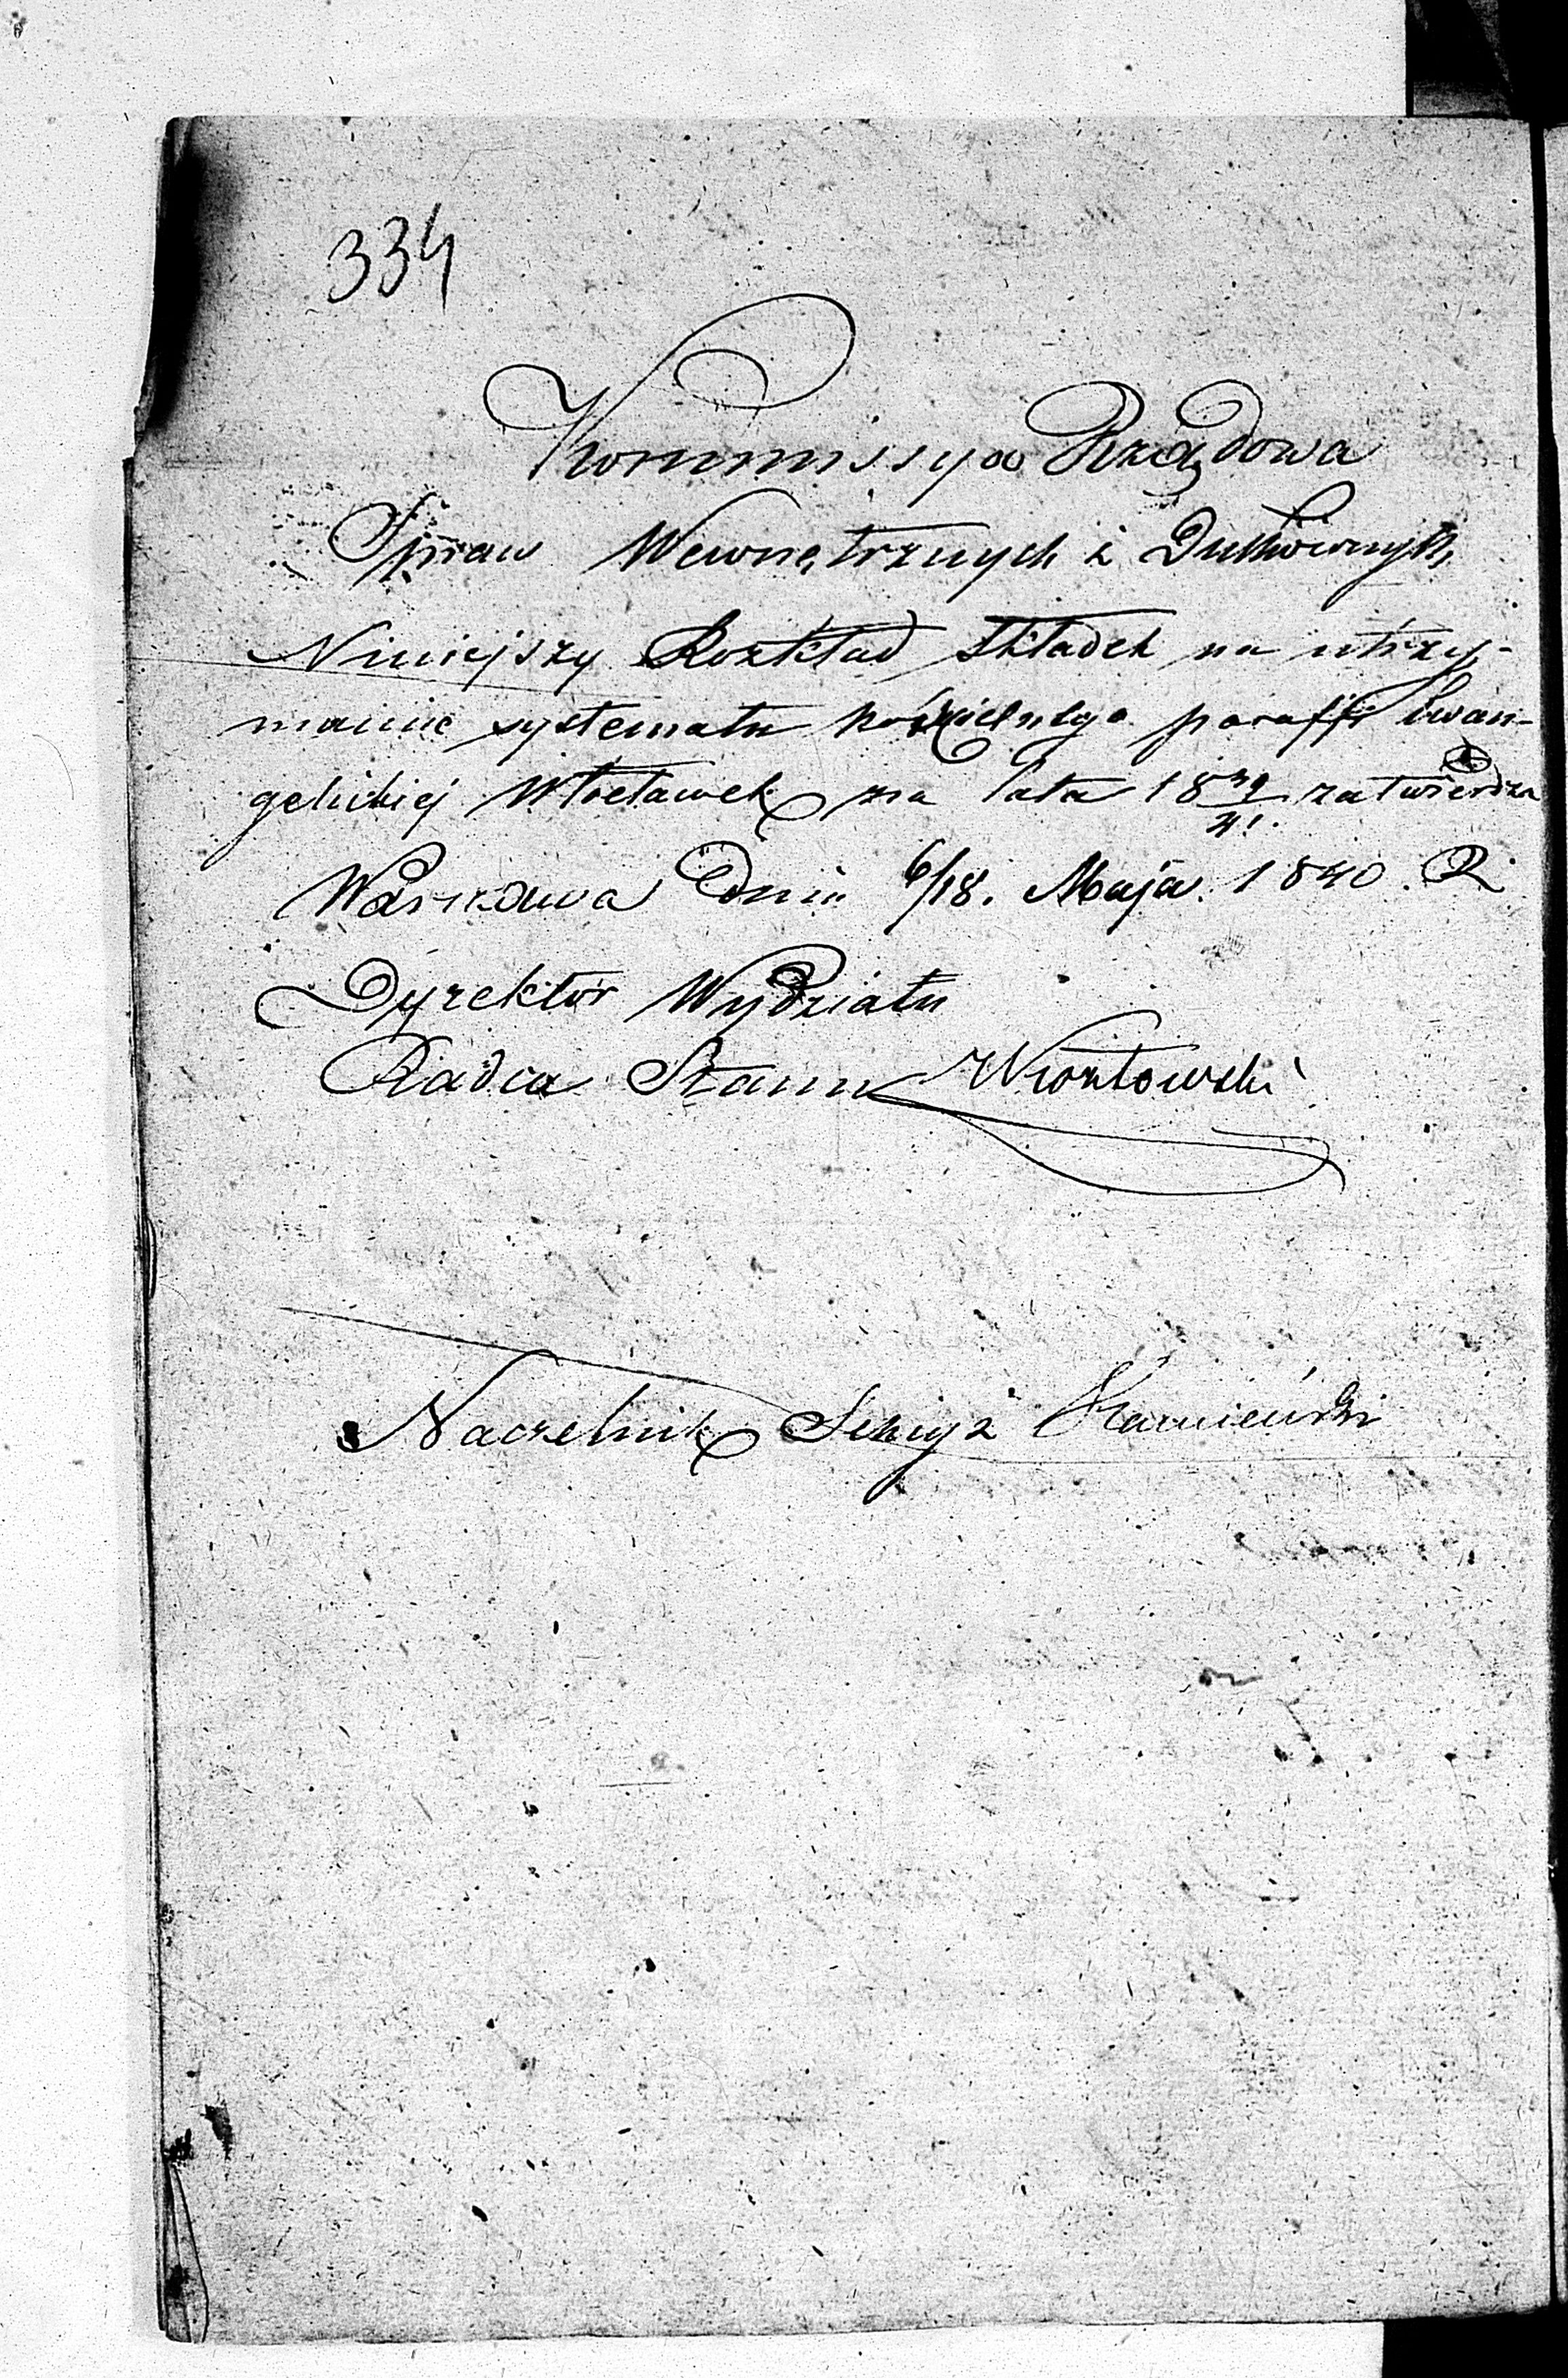 334
Kommissya Rządowa
Spraw Wewnętrznych i Duchownych
Niniejszy Rozkład składek na utrzy-
manie systematu kościelnego paraffii Ewan-
gelickiej Włocławek na lata 18 39/41. zatwierdza
Warszawa dnia 6/18. Maja. 1840. R
Dyrektor Wydziału
Radca Stanu
Naczelnik Sekcyi